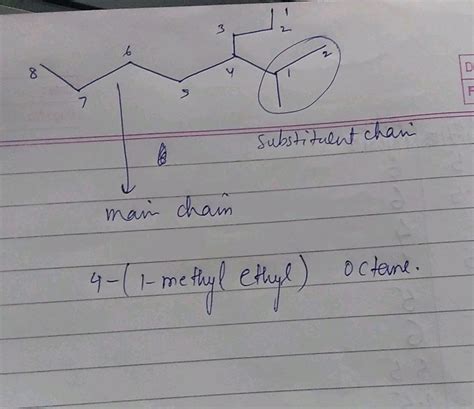 1
3 2
6
8 4 1 2
7 5
substituent chain
main chain
4-(1-methyl ethyl) octane.
D
F